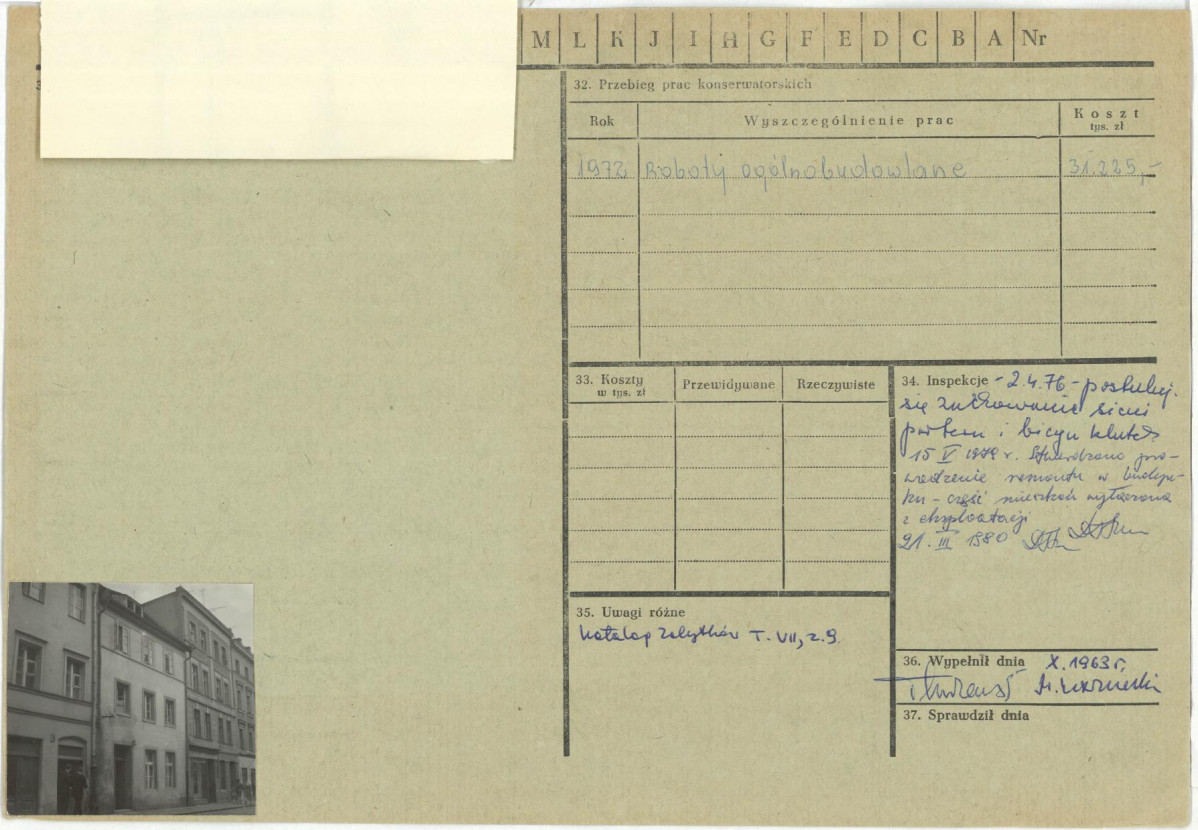 M L K J I H G F E D C B A Nr
32. Przebieg prac konserwatorskich
Rok Wyszczególnienie prac Koszt tys. zł
1972 Roboty ogólnobudowlane 31.225,-
33. Koszty w tys. zł Przewidywane Rzeczywiste
34. Inspekcje - 2.4.76 - postuluj.
się zachowanie sieni
parteru i biegu
15 V 1979 r. Stwierdzono pro-
wadzenie remontu w budyn-
ku - część mieszkań wyłączona
z eksploatacji
21. III 1980
35. Uwagi różne
Katalog Zabytków T. VII, z. 9.
36. Wypełnił dnia X.1963 r.
37. Sprawdził dnia